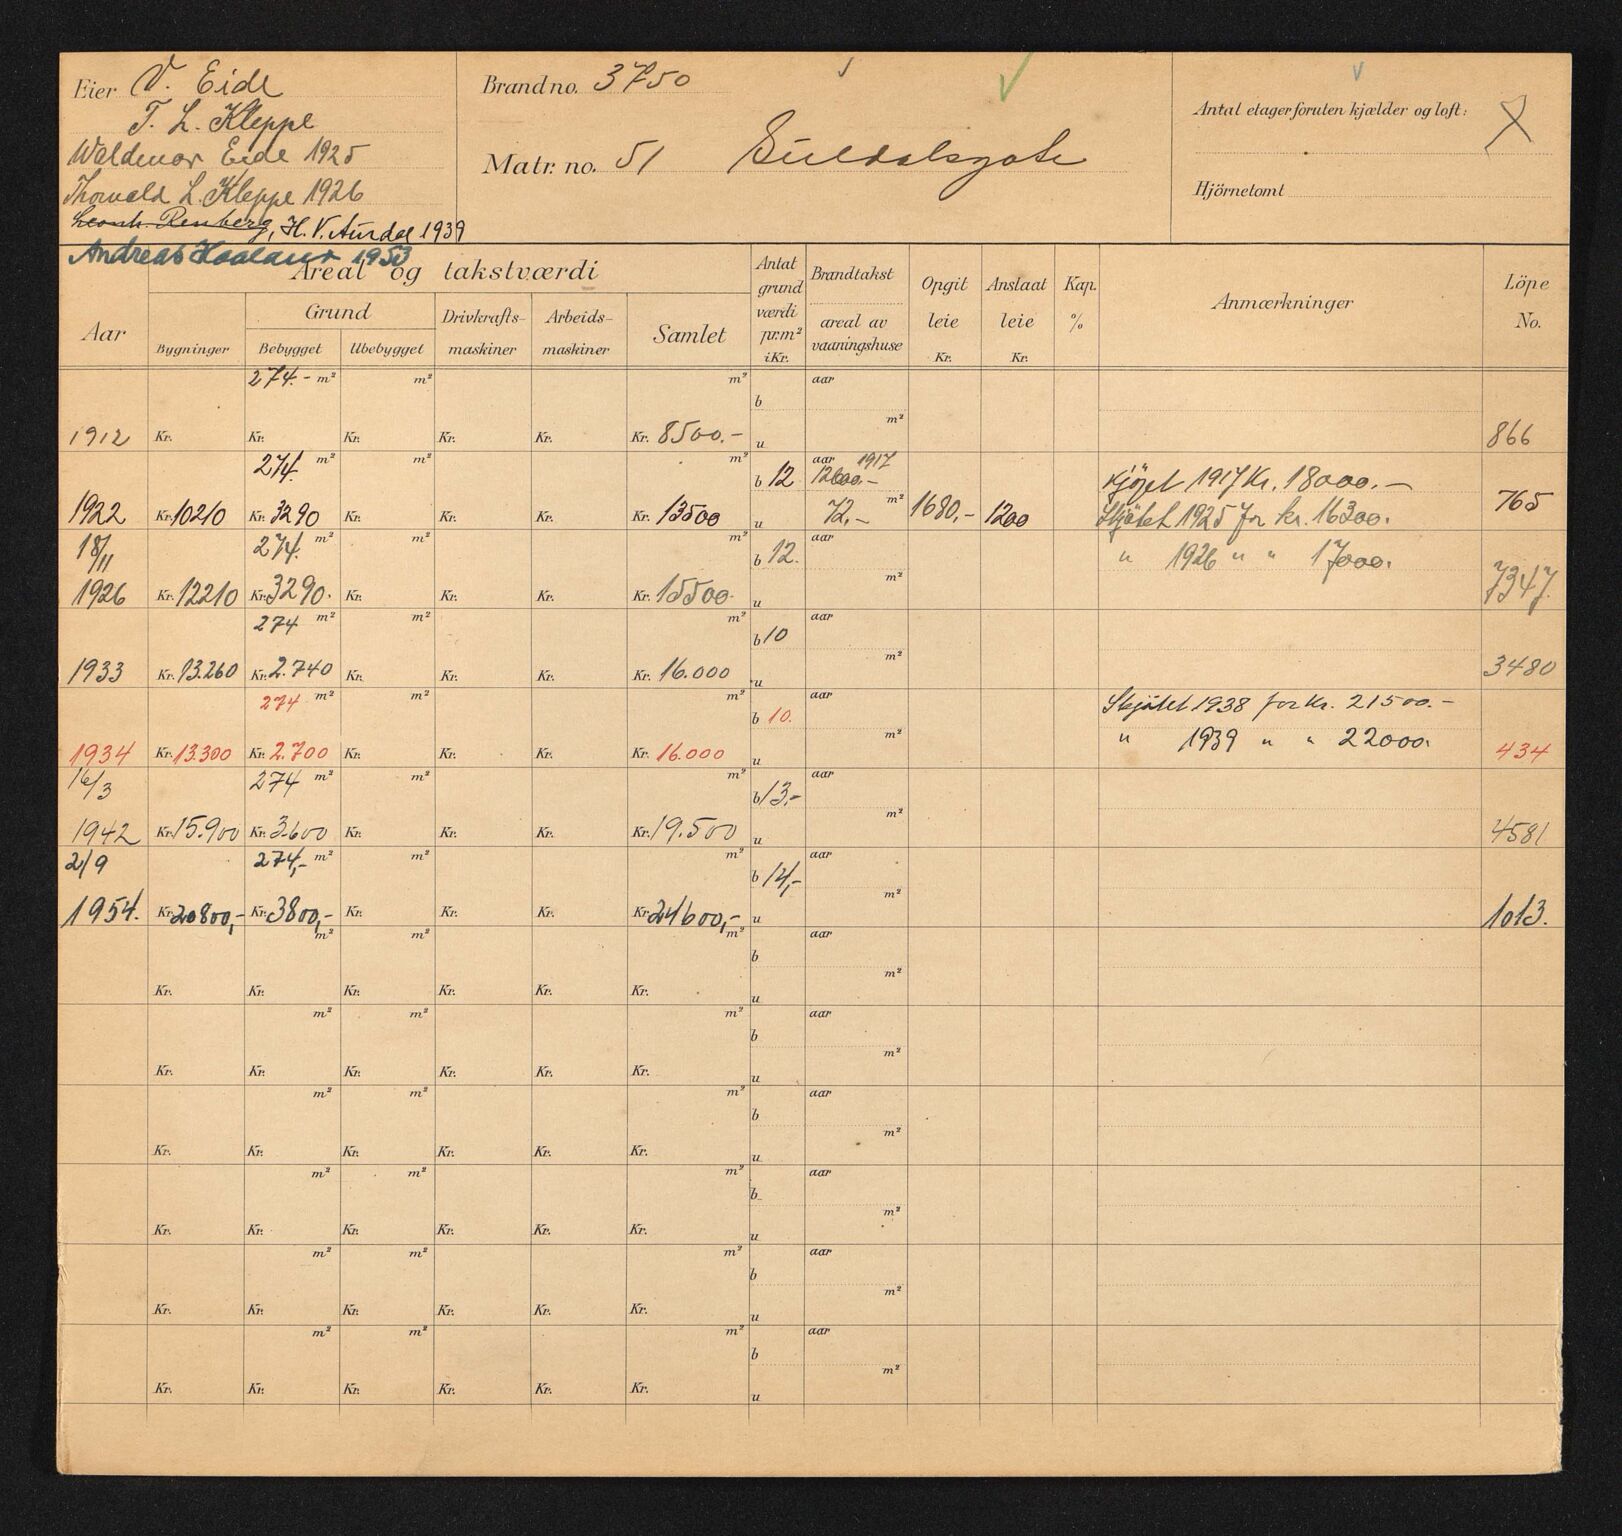 Eier V. Eide
T. L. Kleppe
Waldemar Eide 1925
Thorvald L. Kleppe 1926
Renberg, H. V. Aurdal 1939
Andreas Haaland 1953
Brand no. 3750
Matr. no. 51 Suldalsgate
Antal etager foruten kjælder og loft:
Hjörnetomt
Areal og takstværdi
Aar
Bygninger
Grund
Bebygget
Ubebygget
Drivkrafts-
maskiner
Arbeids-
maskiner
Samlet
Antat
grund
værdi
pr. m²
i Kr.
Brandtakst
areal av
vaaningshuse
Opgit
leie
Kr.
Anslaat
leie
Kr.
Kap.
%
Anmærkninger
Löpe
No.
274.- m² m² m² aar
b
m²
1912 Kr. Kr. Kr. Kr. Kr. Kr. 8500.- u 866
274. m² m² m² aar 1917
b 12 12600.- kjöpt 1917 Kr. 18000.-
m²
1922 Kr. 10210 Kr. 3290 Kr. Kr. Kr. Kr. 13500 u 72.- 1680,- 1200 Skjötet 1925 for kr. 16300. 765
18/11 274. m² m² m² aar
b 12. " 1926 " " 17000.
m²
1926 Kr. 12210 Kr. 3290. Kr. Kr. Kr. Kr. 15500. u 7347.
274 m² m² m² aar
b 10
m²
1933 Kr. 13.260 Kr. 2.740 Kr. Kr. Kr. Kr. 16.000 u 3480
274 m² m² m² aar
b 10. Skjötet 1938 for Kr. 21500.-
m²
1934 Kr. 13.300 Kr. 2.700 Kr. Kr. Kr. Kr. 16.000 u " 1939 " " 22000. 434
16/3 274 m² m² m² aar
b 13,-
m²
1942 Kr. 15.900 Kr. 3.600 Kr. Kr. Kr. Kr. 19.500 u 4581
2/9 274,- m² m² m² aar
b 14,-
m²
1954. Kr. 20800,- Kr. 3800,- Kr. Kr. Kr. Kr. 24600,- u 1013.
m² m² m² aar
b
m²
Kr. Kr. Kr. Kr. Kr. Kr. u
m² m² m² aar
b
m²
Kr. Kr. Kr. Kr. Kr. Kr. u
m² m² m² aar
b
m²
Kr. Kr. Kr. Kr. Kr. Kr. u
m² m² m² aar
b
m²
Kr. Kr. Kr. Kr. Kr. Kr. u
m² m² m² aar
b
m²
Kr. Kr. Kr. Kr. Kr. Kr. u
m² m² m² aar
b
m²
Kr. Kr. Kr. Kr. Kr. Kr. u